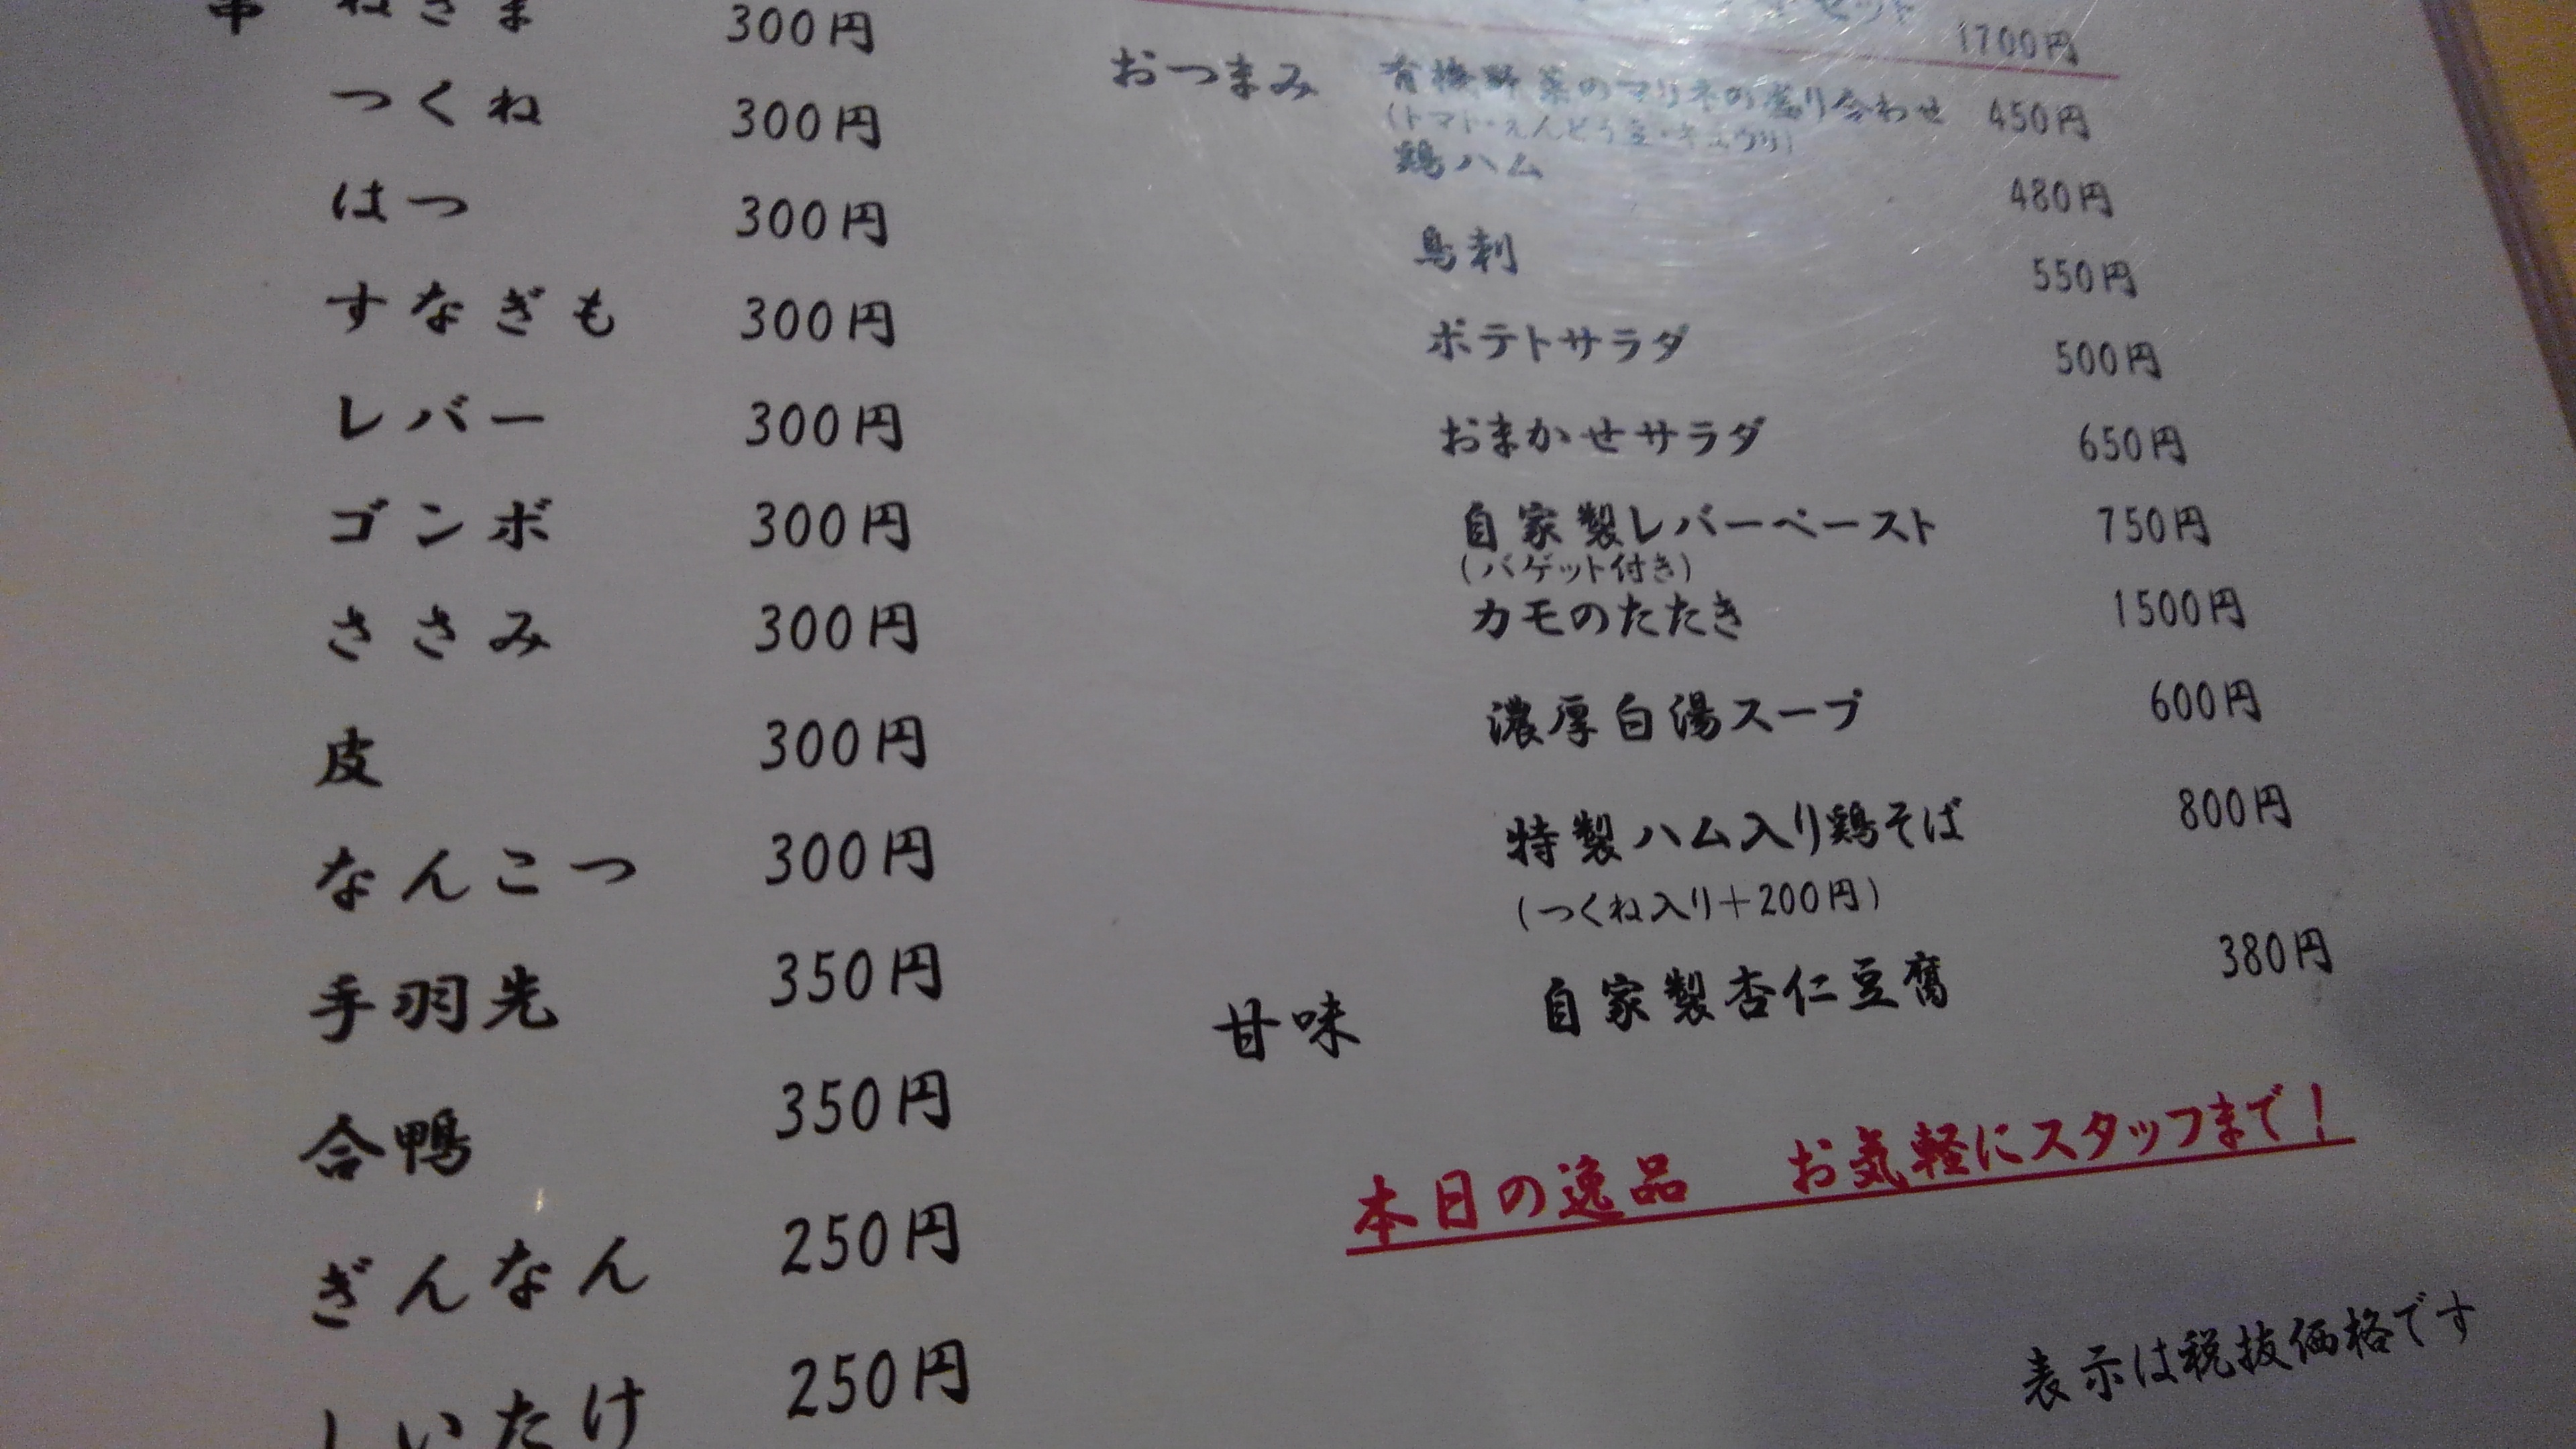 串 ねぎま 300円
つくね 300円
はつ 300円
すなぎも 300円
レバー 300円
ゴンボ 300円
ささみ 300円
皮 300円
なんこつ 300円
手羽先 350円
合鴨 350円
ぎんなん 250円
しいたけ 250円
セット 1700円
おつまみ 有機野菜のマリネの盛り合わせ 450円
(トマト・えんどう豆・キュウリ)
鶏ハム 480円
鳥刺 550円
ポテトサラダ 500円
おまかせサラダ 650円
自家製レバーペースト 750円
(バゲット付き)
カモのたたき 1500円
濃厚白湯スープ 600円
特製ハム入り鶏そば 800円
(つくね入り+200円)
甘味 自家製杏仁豆腐 380円
本日の逸品 お気軽にスタッフまで!
表示は税抜価格です